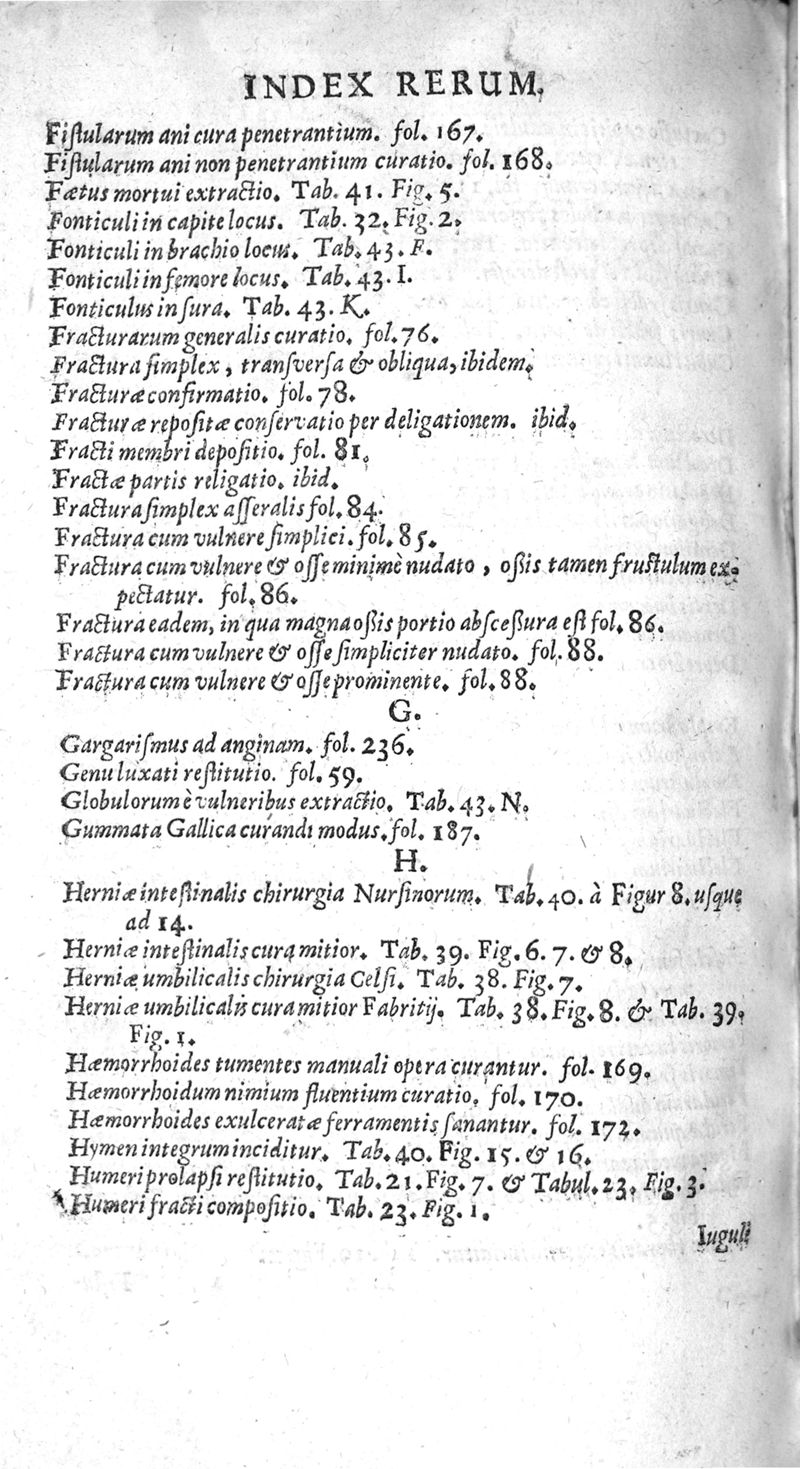 INDEX RERUM.
Fiſtularum ani cura penetrantium. fol. 167.
Fiſtularum ani non penetrantium curatio. fol. 168.
Fætus mortui extractio. Tab. 41. Fig. 5.
Fonticuli in capite locus. Tab. 32. Fig. 2.
Fonticuli in brachio locus. Tab. 43. F.
Fonticuli in femore locus. Tab. 43. I.
Fonticulus in ſura. Tab. 43. K.
Fracturarum generalis curatio. fol. 76.
Fractura ſimplex, tranſverſa & obliqua, ibidem.
Fracturæ confirmatio. fol. 78.
Fracturæ repoſitæ conſervatio per deligationem. ibid.
Fracti membri depoſitio. fol. 81.
Fractæ partis religatio. ibid.
Fractura ſimplex aſſeralis fol. 84.
Fractura cum vulnere ſimplici. fol. 85.
Fractura cum vulnere & oſſe minimè nudato, oßis tamen fruſtulum ex-
pectatur. fol. 86.
Fractura eadem, in qua magna oßis portio abſceßura eſt fol. 86.
Fractura cum vulnere & oſſe ſimpliciter nudato. fol. 88.
Fractura cum vulnere & oſſe prominente. fol. 88.
G.
Gargariſmus ad anginam. fol. 236.
Genu luxati reſtitutio. fol. 59.
Globulorum è vulneribus extractio. Tab. 43. N.
Gummata Gallica curandi modus. fol. 187.
H.
Herniæ inteſtinalis chirurgia Nurſinorum. Tab. 40. à Figur 8. uſque
ad 14.
Herniæ inteſtinalis cura mitior. Tab. 39. Fig. 6. 7. & 8.
Herniæ umbilicalis chirurgia Celſi. Tab. 38. Fig. 7.
Herniæ umbilicalis cura mitior Fabritij. Tab. 38. Fig. 8. & Tab. 39.
Fig. 1.
Hæmorrhoides tumentes manuali opera curantur. fol. 169.
Hæmorrhoidum nimium fluentium curatio. fol. 170.
Hæmorrhoides exulceratæ ferramentis ſanantur. fol. 172.
Hymen integrum inciditur. Tab. 40. Fig. 15. & 16.
Humeri prolapſi reſtitutio. Tab. 21. Fig. 7. & Tabul. 23. Fig. 3.
Humeri fracti compoſitio. Tab. 23. Fig. 1.
Iuguli